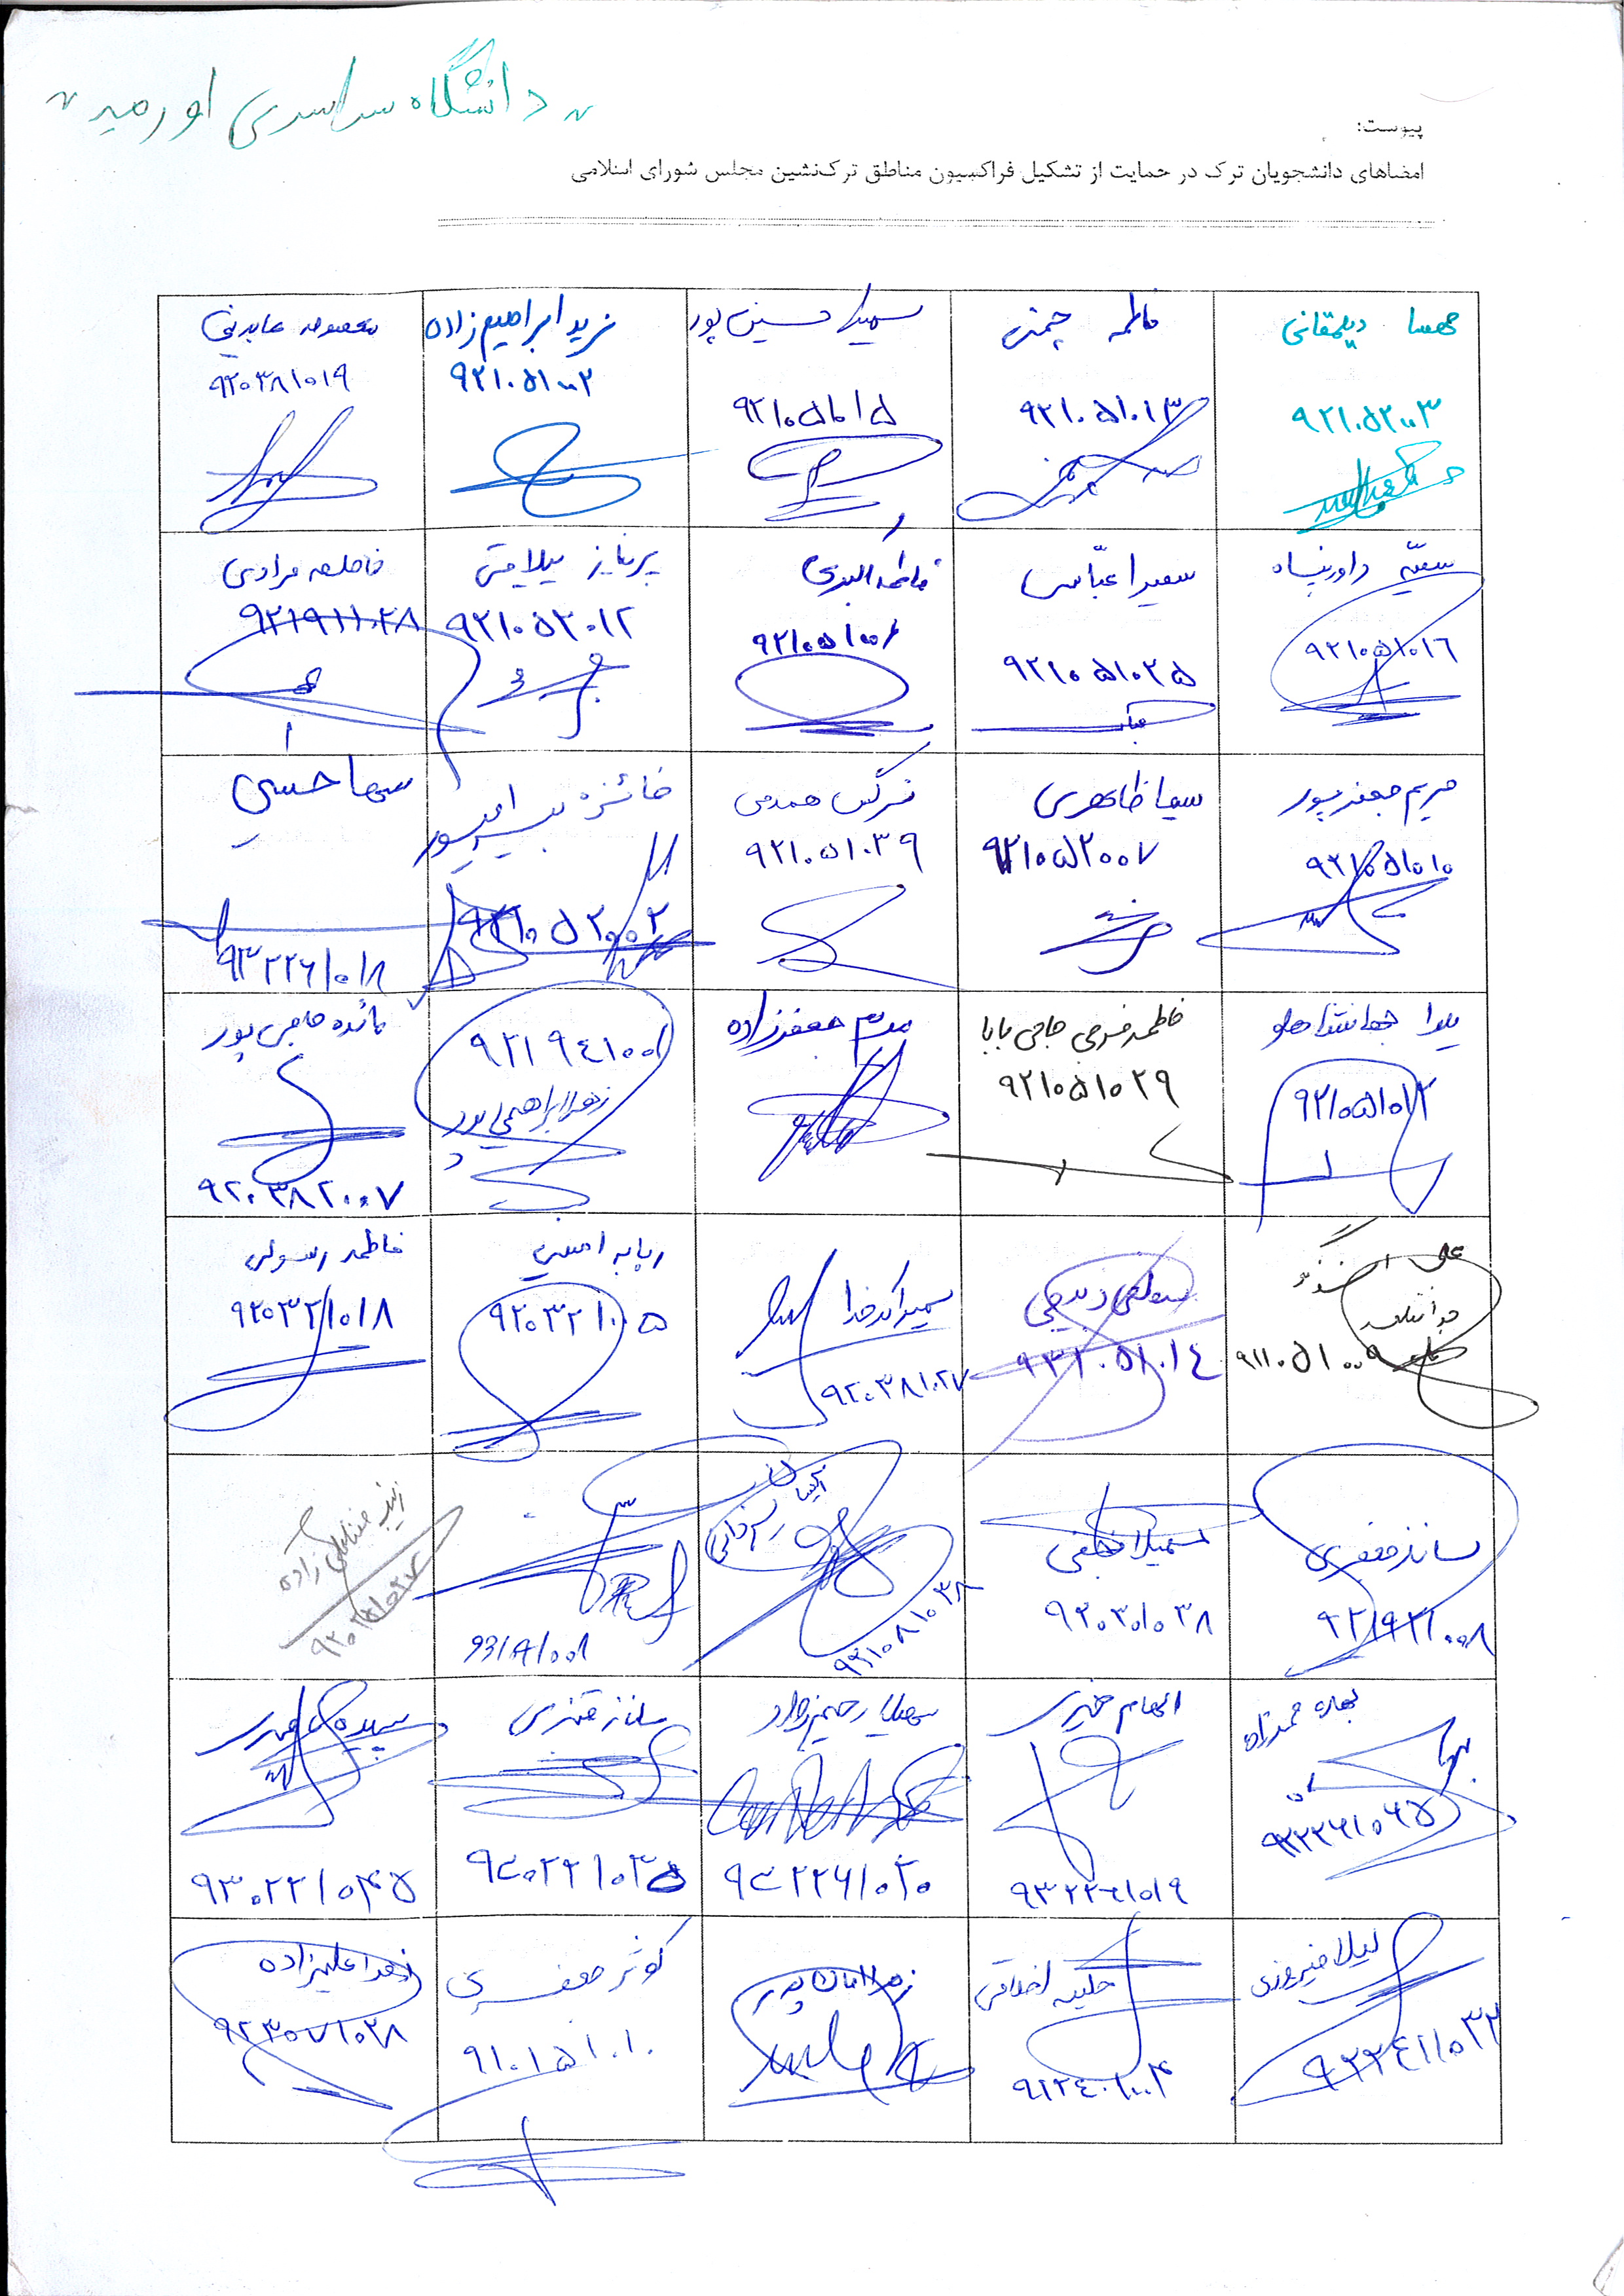 "دانشگاه سراسری اورمیه"
پیوست:
امضاهای دانشجویان ترک در حمایت از تشکیل فراکسیون مناطق ترک‌نشین مجلس شورای اسلامی
مهسا دیلمقانی
۹۲۱۰۵۲۰۰۳
فاطمه چمنی
۹۲۱۰۵۱۰۱۳
سمیلا حسین پور
۹۲۱۰۵۱۰۱۵
فرید ابراهیم زاده
۹۲۱۰۵۱۰۰۲
معصومه عابدینی
۹۲۰۳۸۱۰۱۹
سمیّه داورپناه
۹۲۱۰۵۱۰۱۶
سمیرا عبّاسی
۹۲۱۰۵۱۰۲۵
فاطمه
۹۲۱۰۵۱۰۰۶
پرناز
۹۲۱۰۵۲۰۱۲
مرادی
۹۲۱۹۱۱۰۲۸
مریم جعفرپور
۹۲۱۰۵۱۰۱۰
سیما طاهری
۹۲۱۰۵۲۰۰۷
نرگس همدمی
۹۲۱۰۵۱۰۳۹
فائزه
۹۲۱۰۵۲۰۰۲
سها حسنی
۹۳۲۲۶۱۰۱۸
یلدا جهانشاهلو
۹۲۱۰۵۱۰۱۲
فاطمه فرجی حاجی بابا
۹۲۱۰۵۱۰۲۹
مریم جعفرزاده
۹۲۱۹۴۱۰۰۱
زهرا ابراهیمی پور
مائده حاجی پور
۹۲۰۳۸۲۰۰۷
علی
۹۱۱۰۵۱۰۰۹
۹۳۱۰۵۱۰۱۴
سمیرا کدخدا
۹۲۰۳۸۱۰۲۷
ربابه امینی
۹۲۰۳۲۱۰۰۵
فاطمه رسولی
۹۲۰۳۲۱۰۱۸
ساناز جعفری
۹۲۱۹۲۱۰۰۸
سمیلا
۹۲۰۳۰۱۰۳۸
۹۳۱۰۸۱۰۳۸
زینب
بهاره محمدزاده
۹۳۲۲۶۱۰۶۵
الهام خیری
۹۳۲۲۶۱۰۱۹
سهیلا رحیم زاده
۹۳۲۲۶۱۰۲۰
ساناز قنبری
۹۳۰۲۲۱۰۳۵
سپیده
۹۳۰۲۲۱۰۴۵
لیلا فیروزی
۹۲۲۴۱۱۰۳۲
حلیمه اخلاقی
۹۲۲۴۰۱۰۰۴
کوثر جعفری
۹۱۰۱۵۱۰۱۰
زهرا علیزاده
۹۲۳۰۷۱۰۲۸